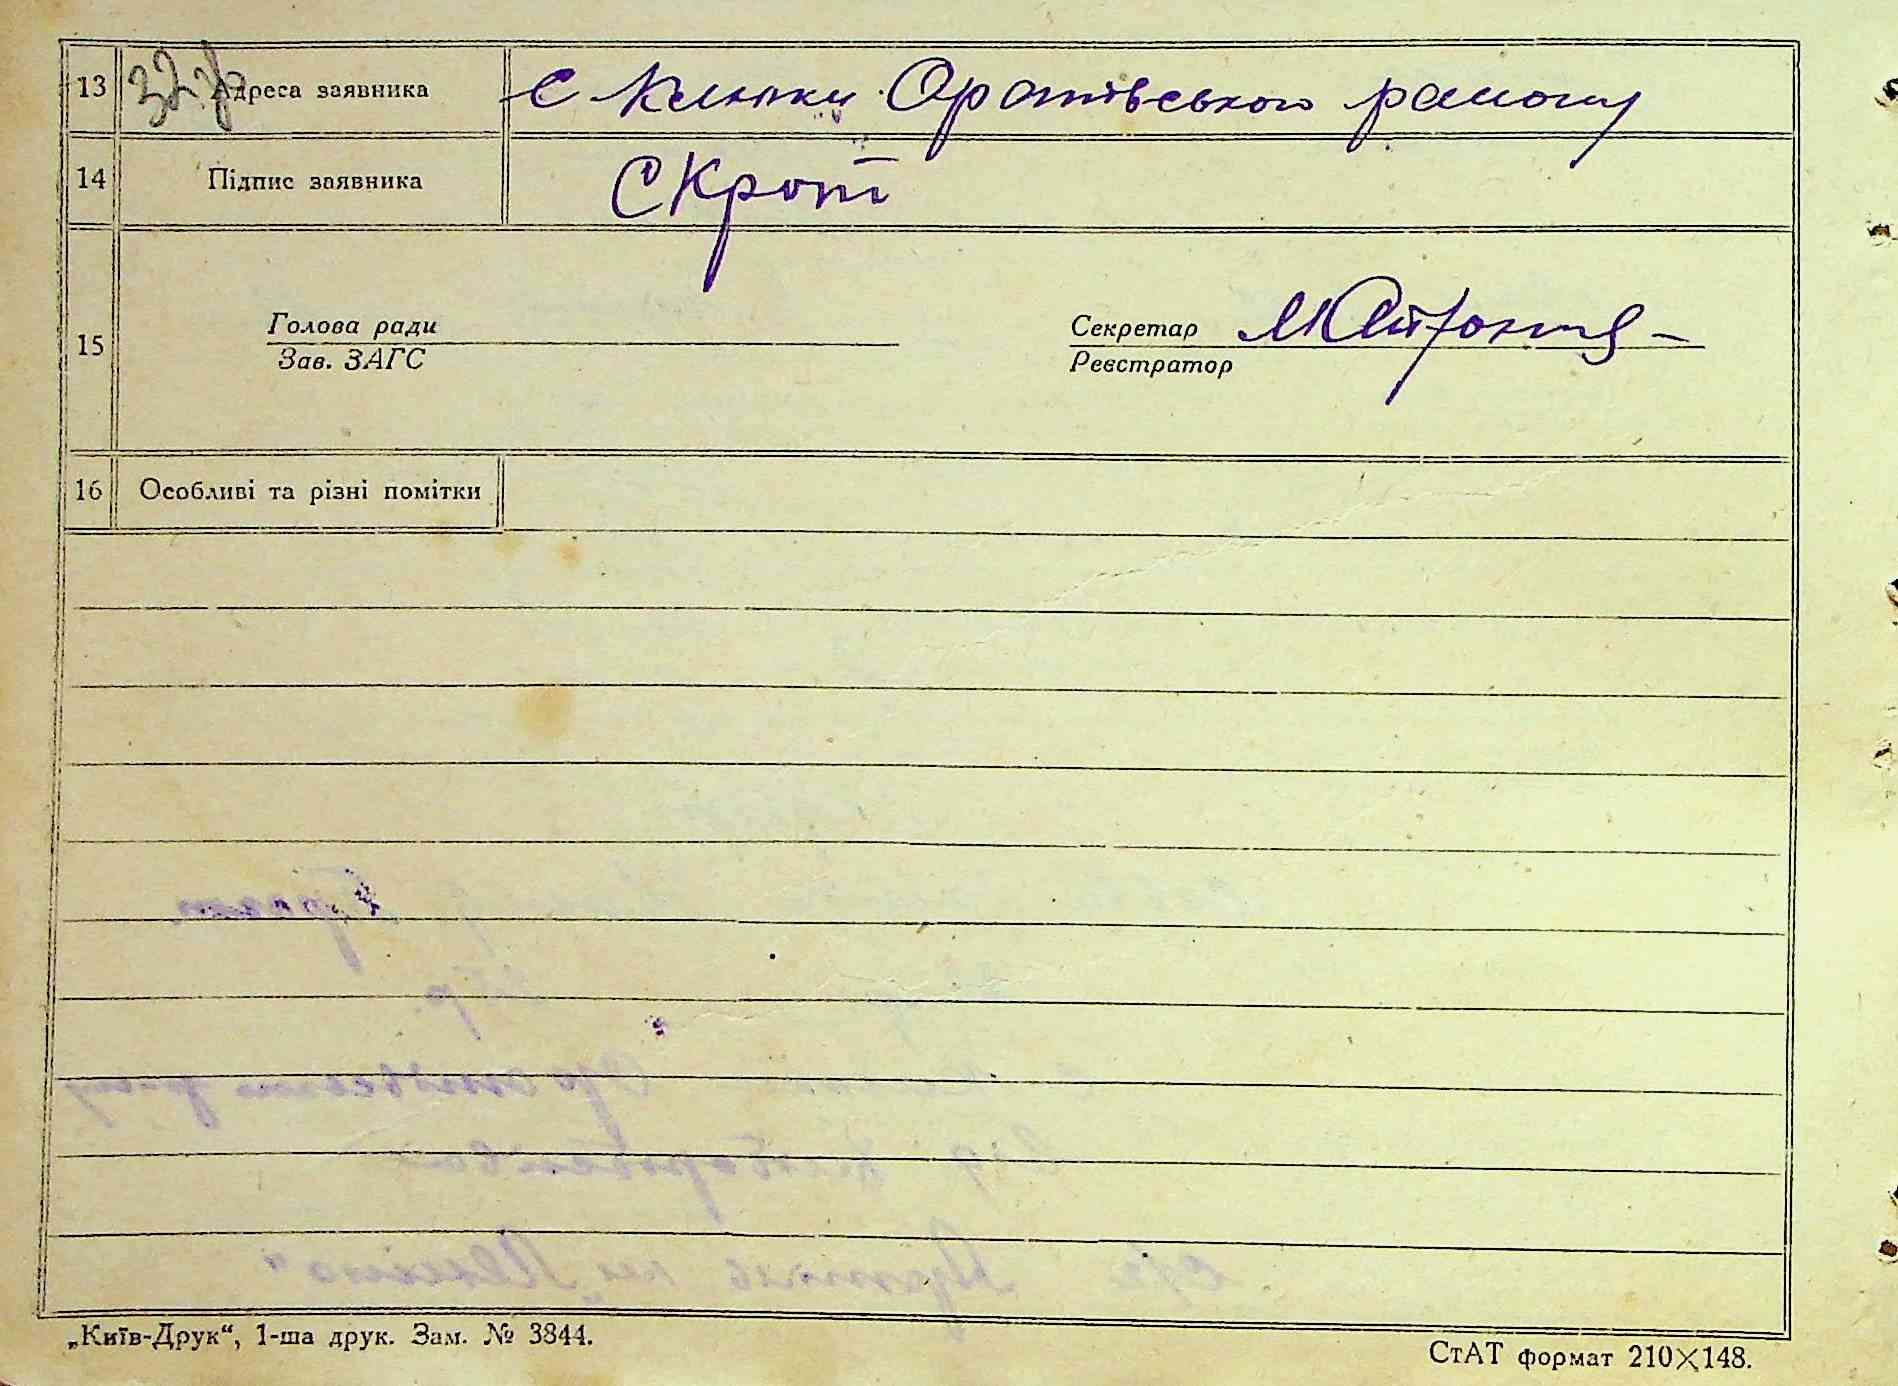 13 Адреса заявника с Клюки Оратівського району
14 Підпис заявника СКрот
15 Голова ради Секретар
Зав. ЗАГС Реєстратор
16 Особливі та різні помітки
„Київ-Друк“, 1-ша друк. Зам. № 3844.
СтАТ формат 210×148.